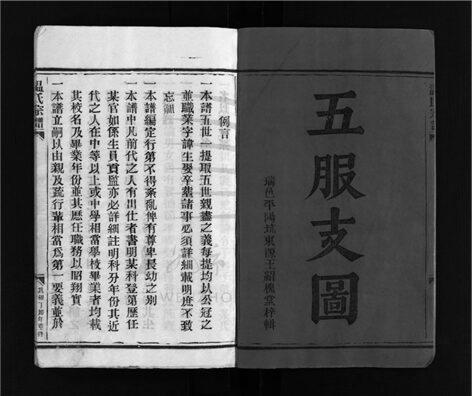 五服支圖
瑞邑平陽坑東源王紹槐堂梓輯
例言
一本譜五世一提取五世親盡之義每提均以公冠之
並職業字諱生娶卒墓諸事必須詳細載明庶不致
忘軼
一本譜編定行第不得紊亂俾有尊卑長幼之別
一本譜中凡前代之人有出仕者書明某科登第歷任
某官如係生員貢監亦必詳細註明科分年份其近
代之人在中等以上或中學相當學校畢業者均載
其校名及畢業年份並其歷任職務以昭翔實
一本譜立嗣以由親及疏行輩相當爲第一要義並於
溫氏宗譜